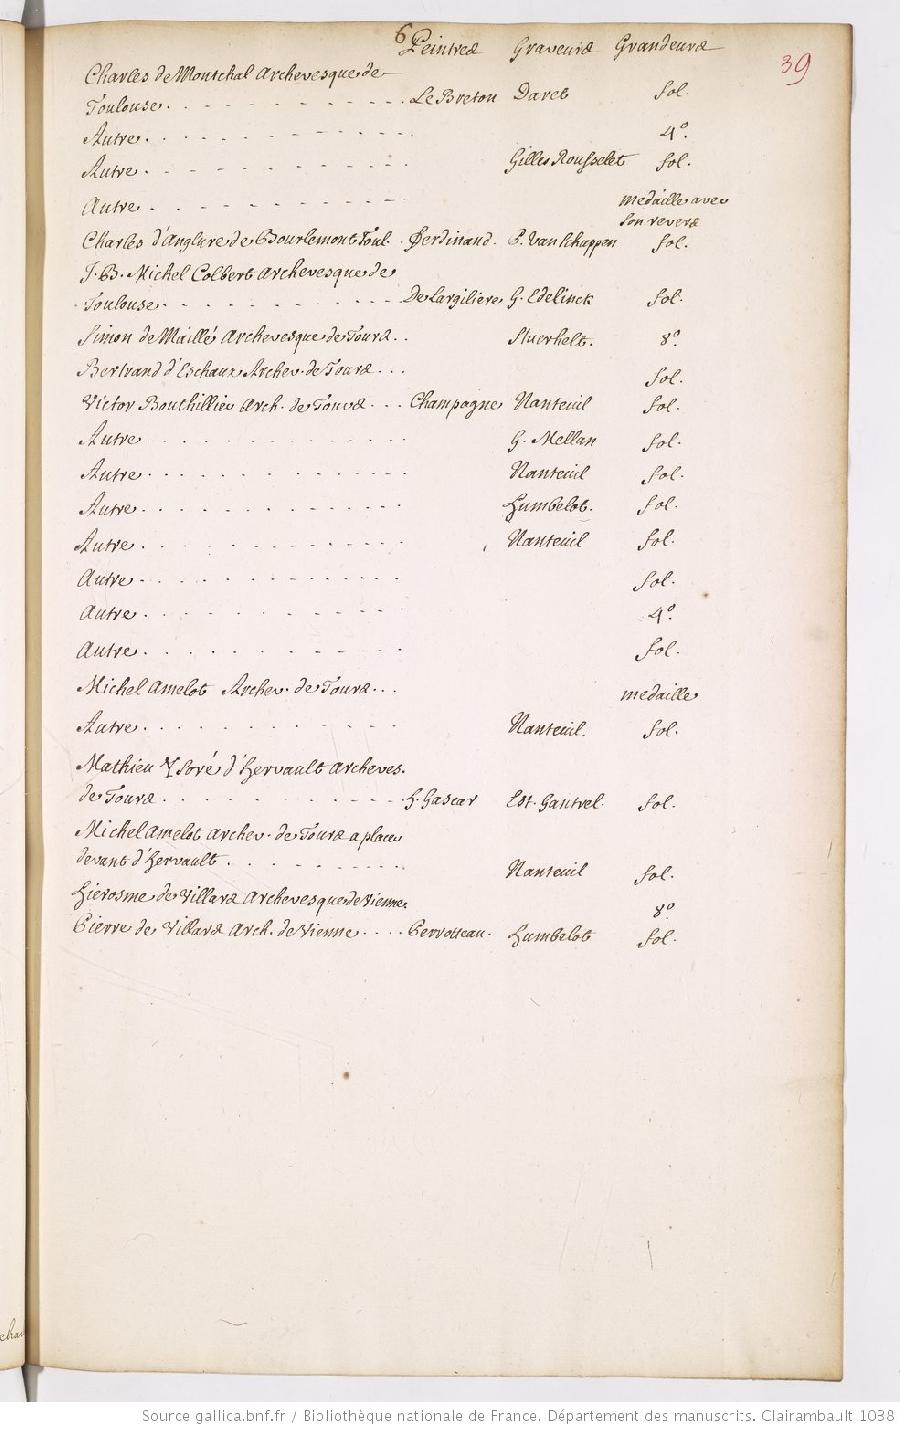 6
Peintres Graveurs Grandeurs
39
Charles de Montchal Archevesque de
Toulouse. Le Breton Daret fol.
Autre. 4º.
Autre. Gilles Rousselet fol.
Autre. medaille avec
son revers
Charles d'Anglure de Bourlemont Toul. Ferdinand. P. Van Schuppen fol.
J. B. Michel Colbert Archevesque de
Toulouse. De Largiliere G. Edelinck fol.
Simon de Maillé Archevesque de Tours. Stuerhelt. 8º.
Bertrand d'Eschaux Archev. de Tours. fol.
Victor Bouthillier Arch. de Tours. Champagne Nanteuil fol.
Autre G. Mellan fol.
Autre. Nanteuil fol.
Autre. Humbelot. fol.
Autre. Nanteuil fol.
Autre. fol.
Autre. 4º
Autre. fol.
Michel Amelot Archev. de Tours. medaille
Autre. Nanteuil. fol.
Mathieu Ysoré d'Hervault Archeves.
de Tours. H. Gascar Est. Gantrel fol.
Michel Amelot Archev. de Tours a placer
devant d'Hervault. Nanteuil fol.
Hierosme de Villars Archevesque de Vienne. 8º
Pierre de Villars Arch. de Vienne. humbelot fol.
Source gallica.bnf.fr / Bibliothèque nationale de France. Département des manuscrits. Clairambault 1038